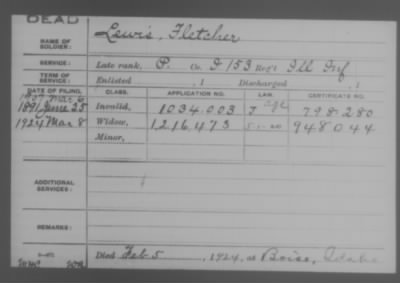 DEAD
NAME OF SOLDIER: Lewis, Fletcher
SERVICE: Late rank, P. Co. I 153 Reg't Ill Inf
TERM OF SERVICE: Enlisted , 1 Discharged , 1
DATE OF FILING. CLASS. APPLICATION NO. LAW. CERTIFICATE NO.
1907 Mar 6
1891 June 25 Invalid, 1034.003 J age 798.280
1924 Mar 8 Widow, 1216.473 948044
Minor,
ADDITIONAL SERVICES:
REMARKS:
Died Feb 5, 1924, at Boise, Idaho